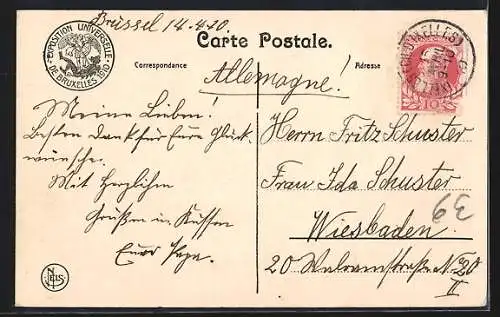 Brüssel 14.4.10
EXPOSITION UNIVERSELLE
DE BRUXELLES 1910
Carte Postale.
Correspondance
Adresse
Allemagne!
Meine Lieben!
Besten Dank für Eure Glück-
wünsche.
Mit Herzlichen
Grüßen u. Küssen
Euer Papa.
Herrn Fritz Schuster
Frau Ida Schuster
Wiesbaden
20 Walramstraße No 20
II
10
NELS